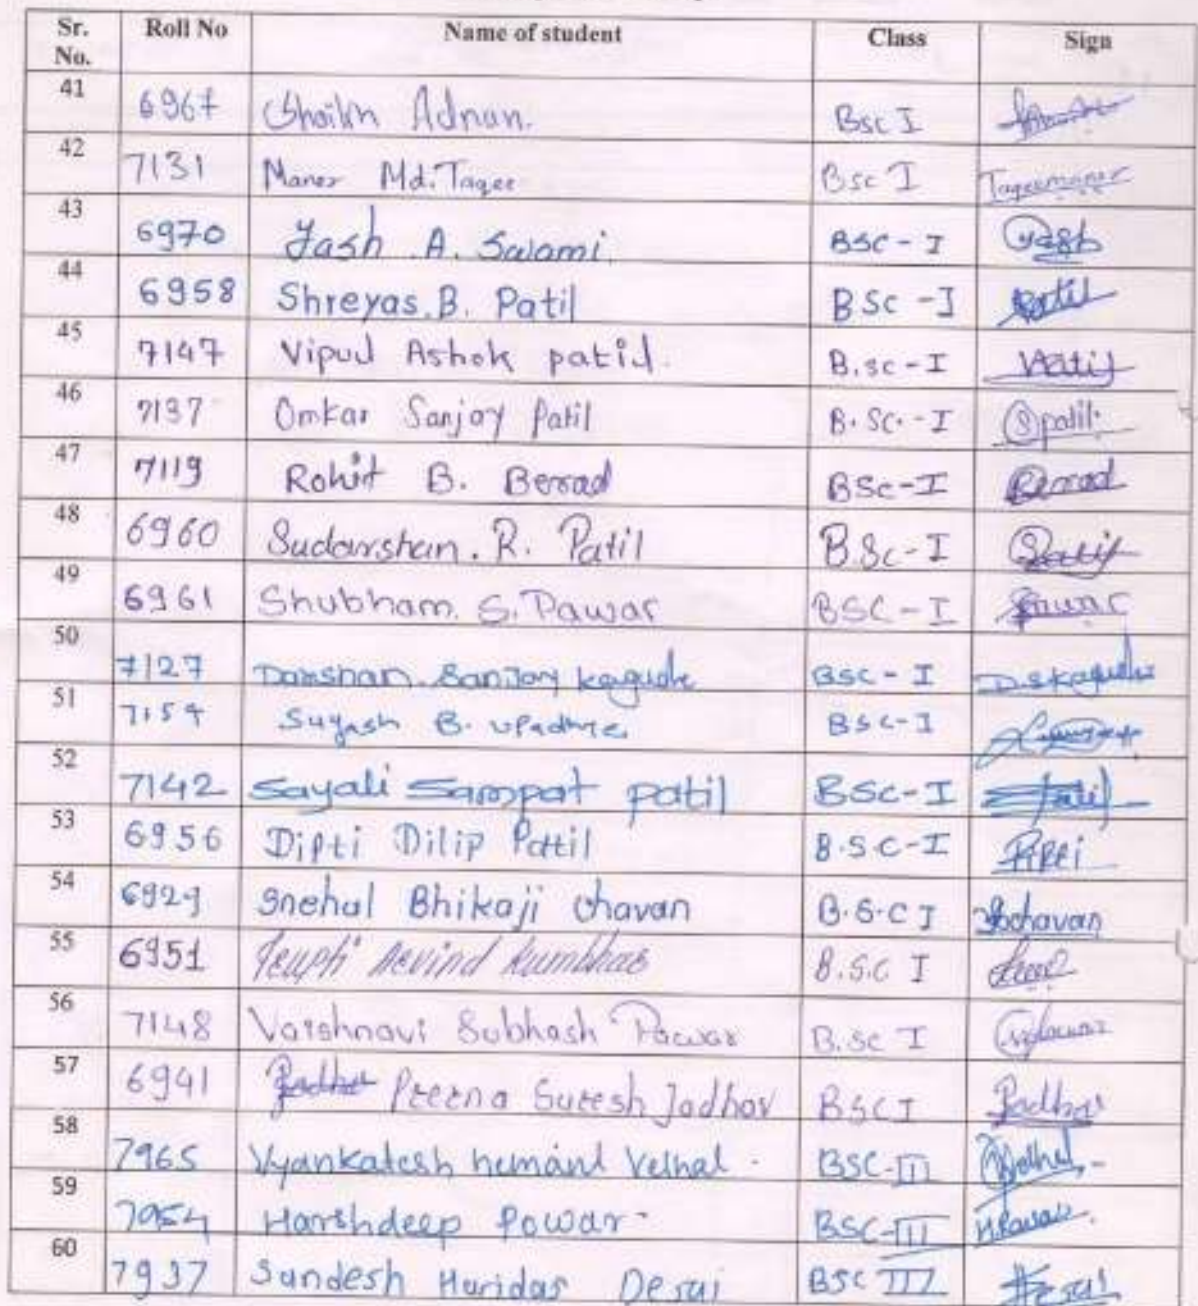 Sr. No. Roll No Name of student Class Sign
41 6967 Shaikh Adnan. Bsc I
42 7131 Maner Md. Taqee Bsc I Taqeemaner
43 6970 Yash .A. Swami. BSC - I Yash
44 6958 Shreyas.B. Patil BSc - I Patil
45 7147 Vipul Ashok patil. B.sc - I Patil
46 7137 Omkar Sanjay Patil B. SC. - I Spatil.
47 7119 Rohit B. Berad BSc-I Berad
48 6960 Sudarshan. R. Patil B.Sc-I Patil
49 6961 Shubham. S. Pawar BSC - I Pawar
50 7127 Darshan. Sanjay kagude BSC - I D.S Kagude
51 Suyash B. upadhye BSC-I
52 7142 Sayali Sampat patil BSC-I Patil
53 6956 Dipti Dilip Patil B.S.C-I
54 6929 Snehal Bhikaji Chavan B.S.C I Sbchavan
55 6951 Arvind Kumbhar B.S.C I
56 7148 Vaishnavi Subhash Pawar B.SC I
57 6941 Prerna Suresh Jadhav BSC I Jadhav
58 7965 Vyankatesh hemant Velhal . BSC-III Velhal
59 7954 Harshdeep Powar - BSC-III
60 7937 Sandesh Haridas Desai BSC III Desai